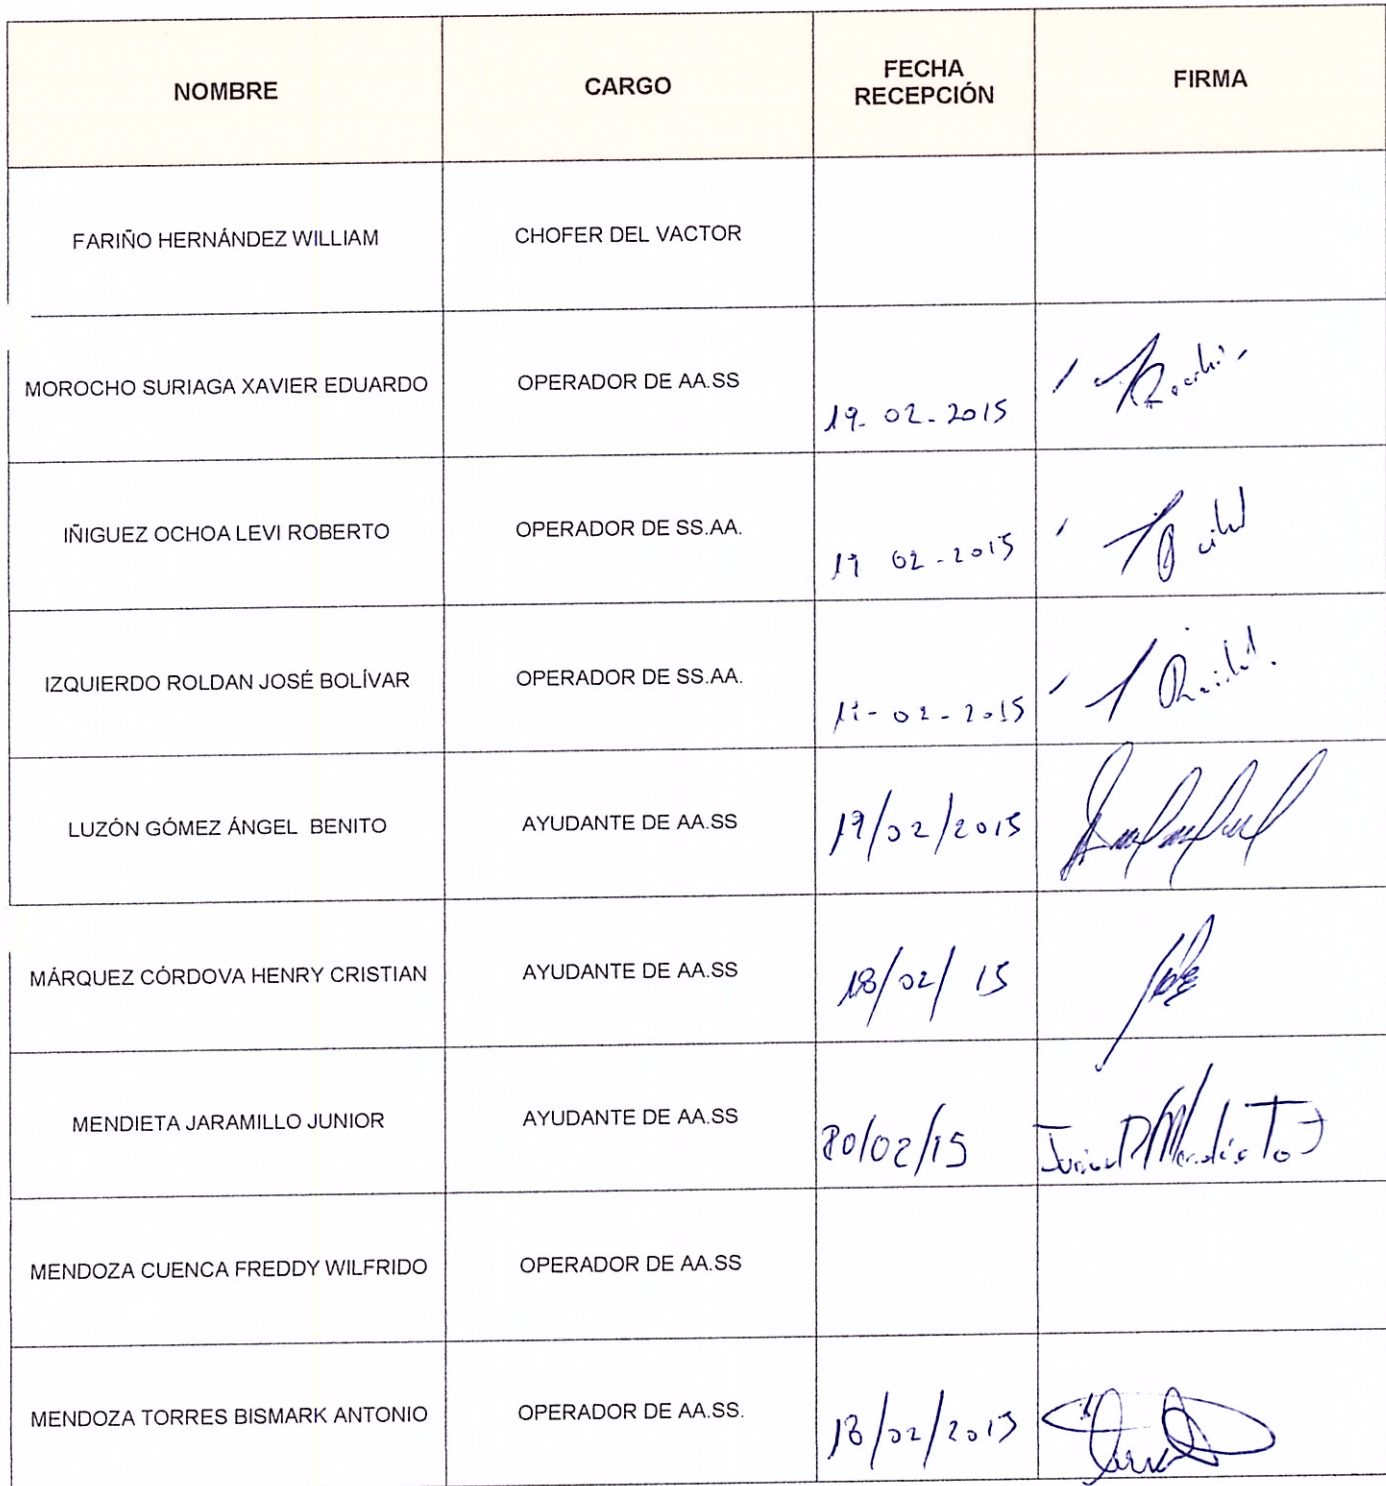 NOMBRE CARGO FECHA RECEPCIÓN FIRMA
FARIÑO HERNÁNDEZ WILLIAM CHOFER DEL VACTOR
MOROCHO SURIAGA XAVIER EDUARDO OPERADOR DE AA.SS 19-02-2015
IÑIGUEZ OCHOA LEVI ROBERTO OPERADOR DE SS.AA. 19 02-2015
IZQUIERDO ROLDAN JOSÉ BOLÍVAR OPERADOR DE SS.AA. 02-2015
LUZÓN GÓMEZ ÁNGEL BENITO AYUDANTE DE AA.SS 19/02/2015
MÁRQUEZ CÓRDOVA HENRY CRISTIAN AYUDANTE DE AA.SS 18/02/15
MENDIETA JARAMILLO JUNIOR AYUDANTE DE AA.SS 20/02/15
MENDOZA CUENCA FREDDY WILFRIDO OPERADOR DE AA.SS
MENDOZA TORRES BISMARK ANTONIO OPERADOR DE AA.SS. 18/02/2015